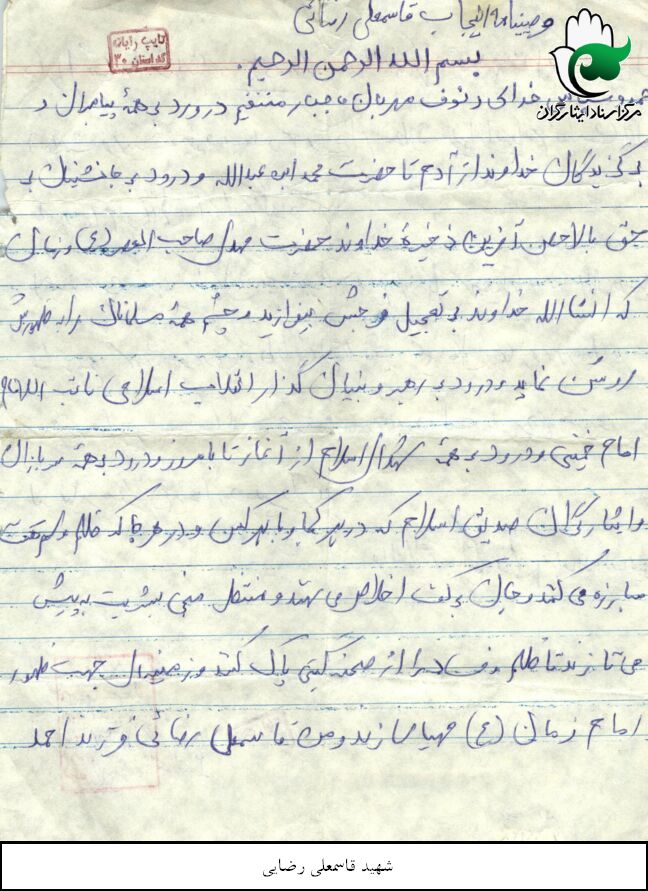 وصیتنامه اینجانب قاسمعلی رضائی
بسم الله الرحمن الرحیم.
تایپ رایانه
کد استان ۳۰
مرکز اسناد ایثارگران
خدای رئوف مهربان و جبار منتقم و درود بر همهٔ پیامبران و
برگزیدگان خداوند از آدم تا حضرت محمد ابن عبدالله و درود بر جانشینان بر
حق بالاخص آخرین ذخیرهٔ خداوند حضرت مهدی صاحب العصر (ع) و زمان
که انشاالله خداوند بر تعجیل فرجش بیفزاید و چشم همهٔ مسلمانان را به ظهورش
روشن نماید و درود بر رهبر و بنیان گذار انقلاب اسلامی نائب الامام
امام خمینی و درود بر همهٔ شهدای اسلام از آغاز تا بامروز و درود بر همهٔ سربازان
و ایثارگران صدیق اسلام که در هر کجا و با هر کس و در هر جا که ظلم و ستم هست
مبارزه می کنند و جان بر کف اخلاص می نهند و منتظر منجی بشریت به پیش
می تازند تا ظلم و فساد را از صحنه گیتی پاک کنند و زمینه را جهت ظهور
امام زمان (ع) مهیا سازند و من قاسمعلی رضائی فرزند احمد
شهید قاسمعلی رضایی